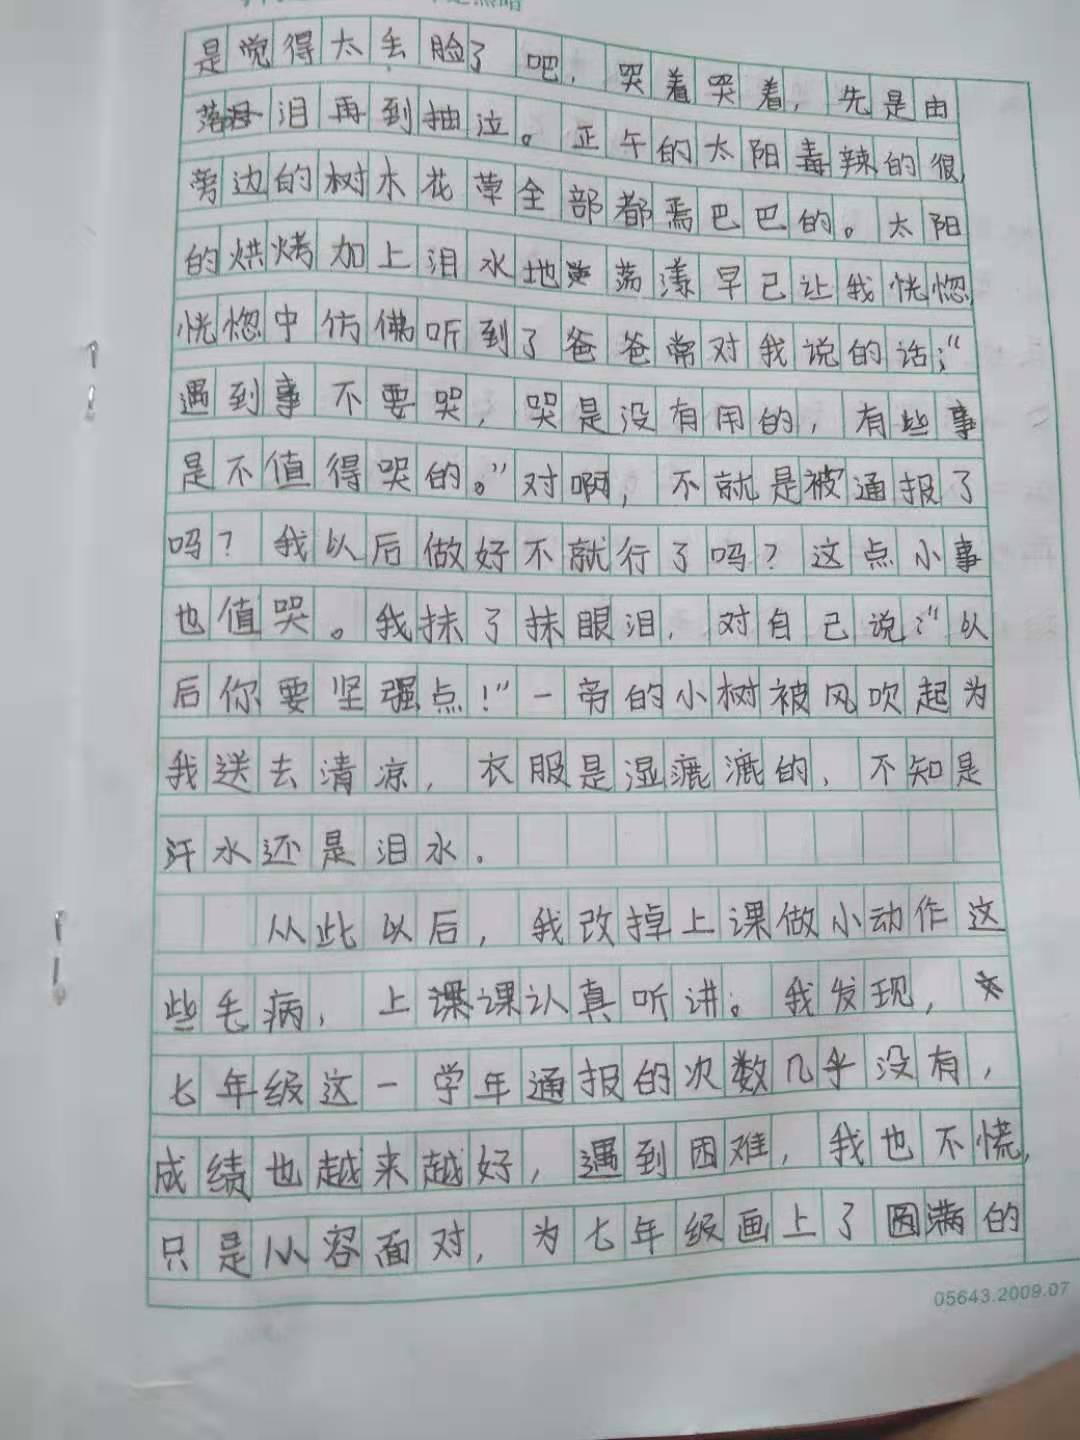 是觉得太丢脸了吧，哭着哭着，先是由
落泪再到抽泣。正午的太阳毒辣的很
旁边的树木花草全部都焉巴巴的。太阳
的烘烤加上泪水地荡漾早已让我恍惚
恍惚中仿佛听到了爸爸常对我说的话：“
遇到事不要哭，哭是没有用的，有些事
是不值得哭的。”对啊，不就是被通报了
吗？我以后做好不就行了吗？这点小事
也值哭。我抹了抹眼泪，对自己说：“以
后你要坚强点！”一旁的小树被风吹起为
我送去清凉，衣服是湿漉漉的，不知是
汗水还是泪水。
从此以后，我改掉上课做小动作这
些毛病，上课认真听讲。我发现，
七年级这一学年通报的次数几乎没有，
成绩也越来越好，遇到困难，我也不慌，
只是从容面对，为七年级画上了圆满的
05643.2009.07